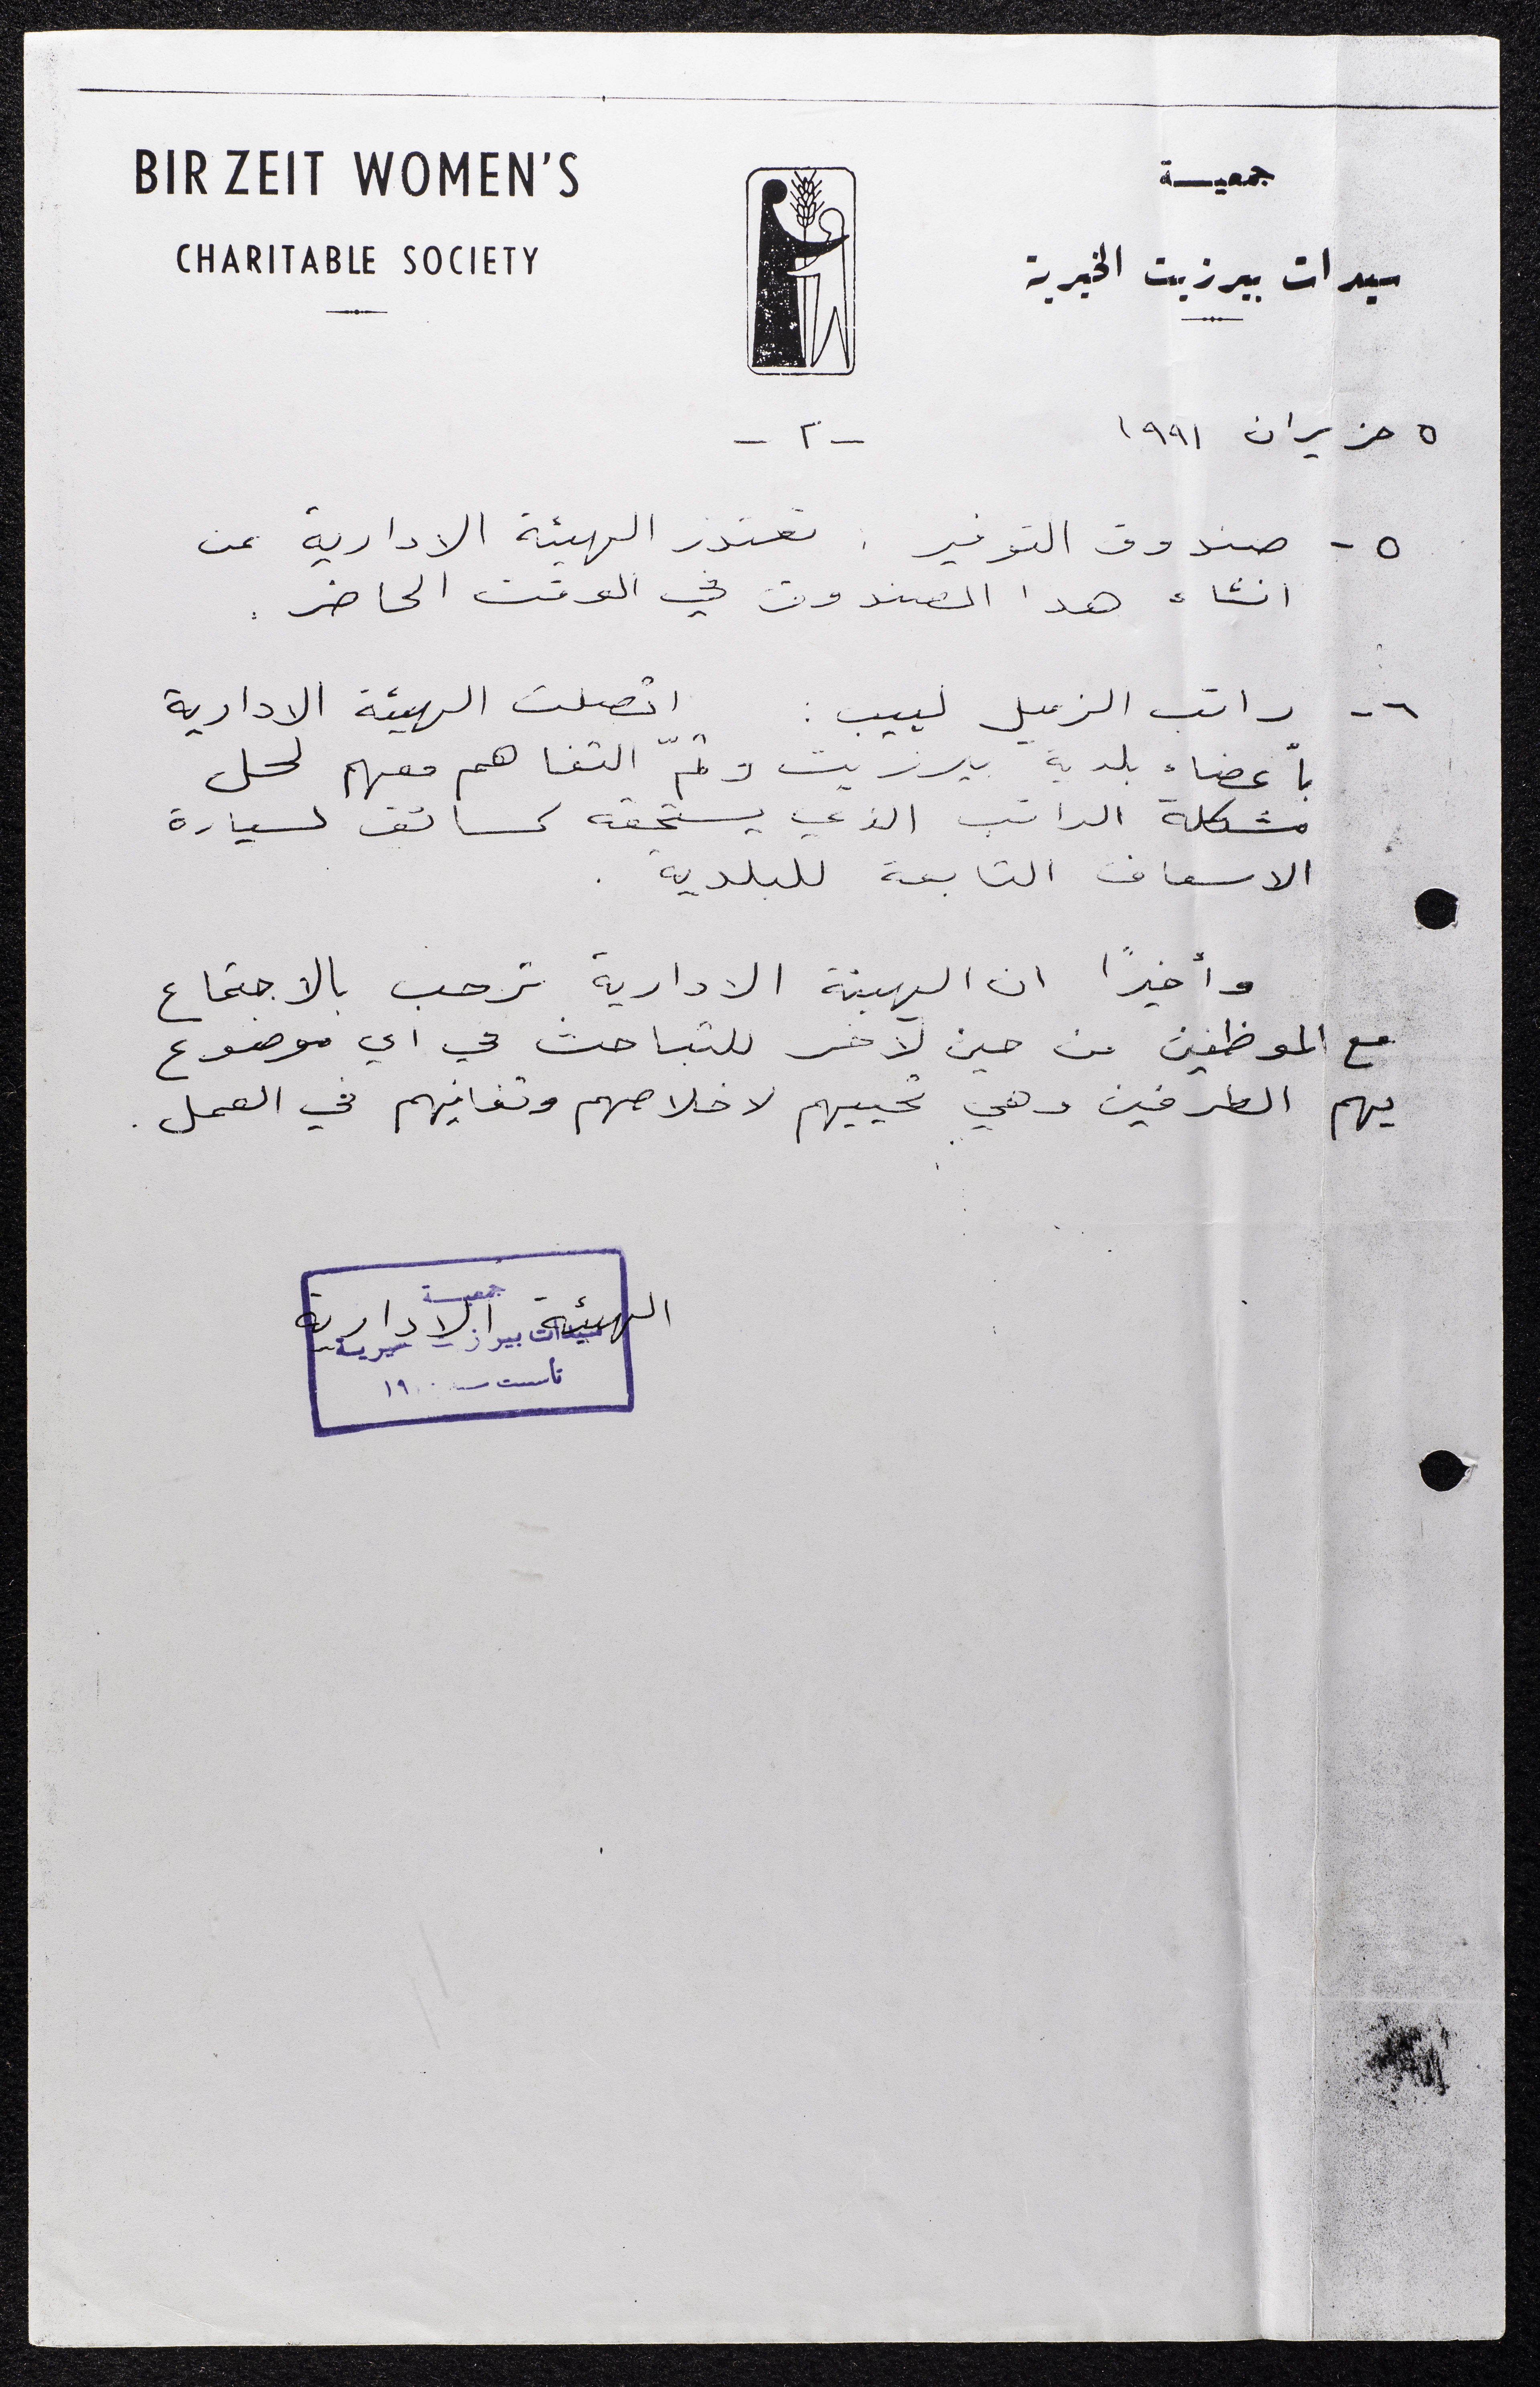 BIR ZEIT WOMEN'S
CHARITABLE SOCIETY
جمعيـــة
سيدات بيرزيت الخيرية
٥ حزيران ١٩٩١
- ٢ -
٥ - صندوق التوفير : تعتذر الهيئة الادارية عن
انشاء هذا الصندوق في الوقت الحاضر .
٦ - راتب الزميل لبيب : اتصلت الهيئة الادارية
بأعضاء بلدية بيرزيت وتمّ التفاهم معهم لحل
مشكلة الراتب الذي يستحقه كسائق لسيارة
الاسعاف التابعة للبلدية .
وأخيرًا ان الهيئة الادارية ترحب بالاجتماع
مع الموظفين من حين لآخر للتباحث في اي موضوع
يهم الطرفين وهي تحييهم لاخلاصهم وتفانيهم في العمل .
الهيئة الادارية
جمعيـــة
سيدات بيرز
تأسست